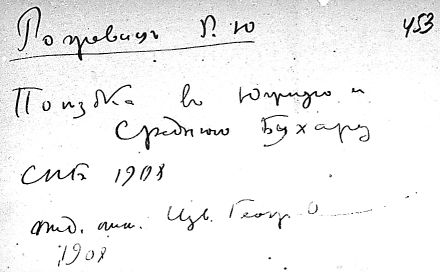 П. Ю 453
Поездка в Южную и
Среднюю Бухару
СПБ 1908
отд. отт. Изв. Геогр О
1908